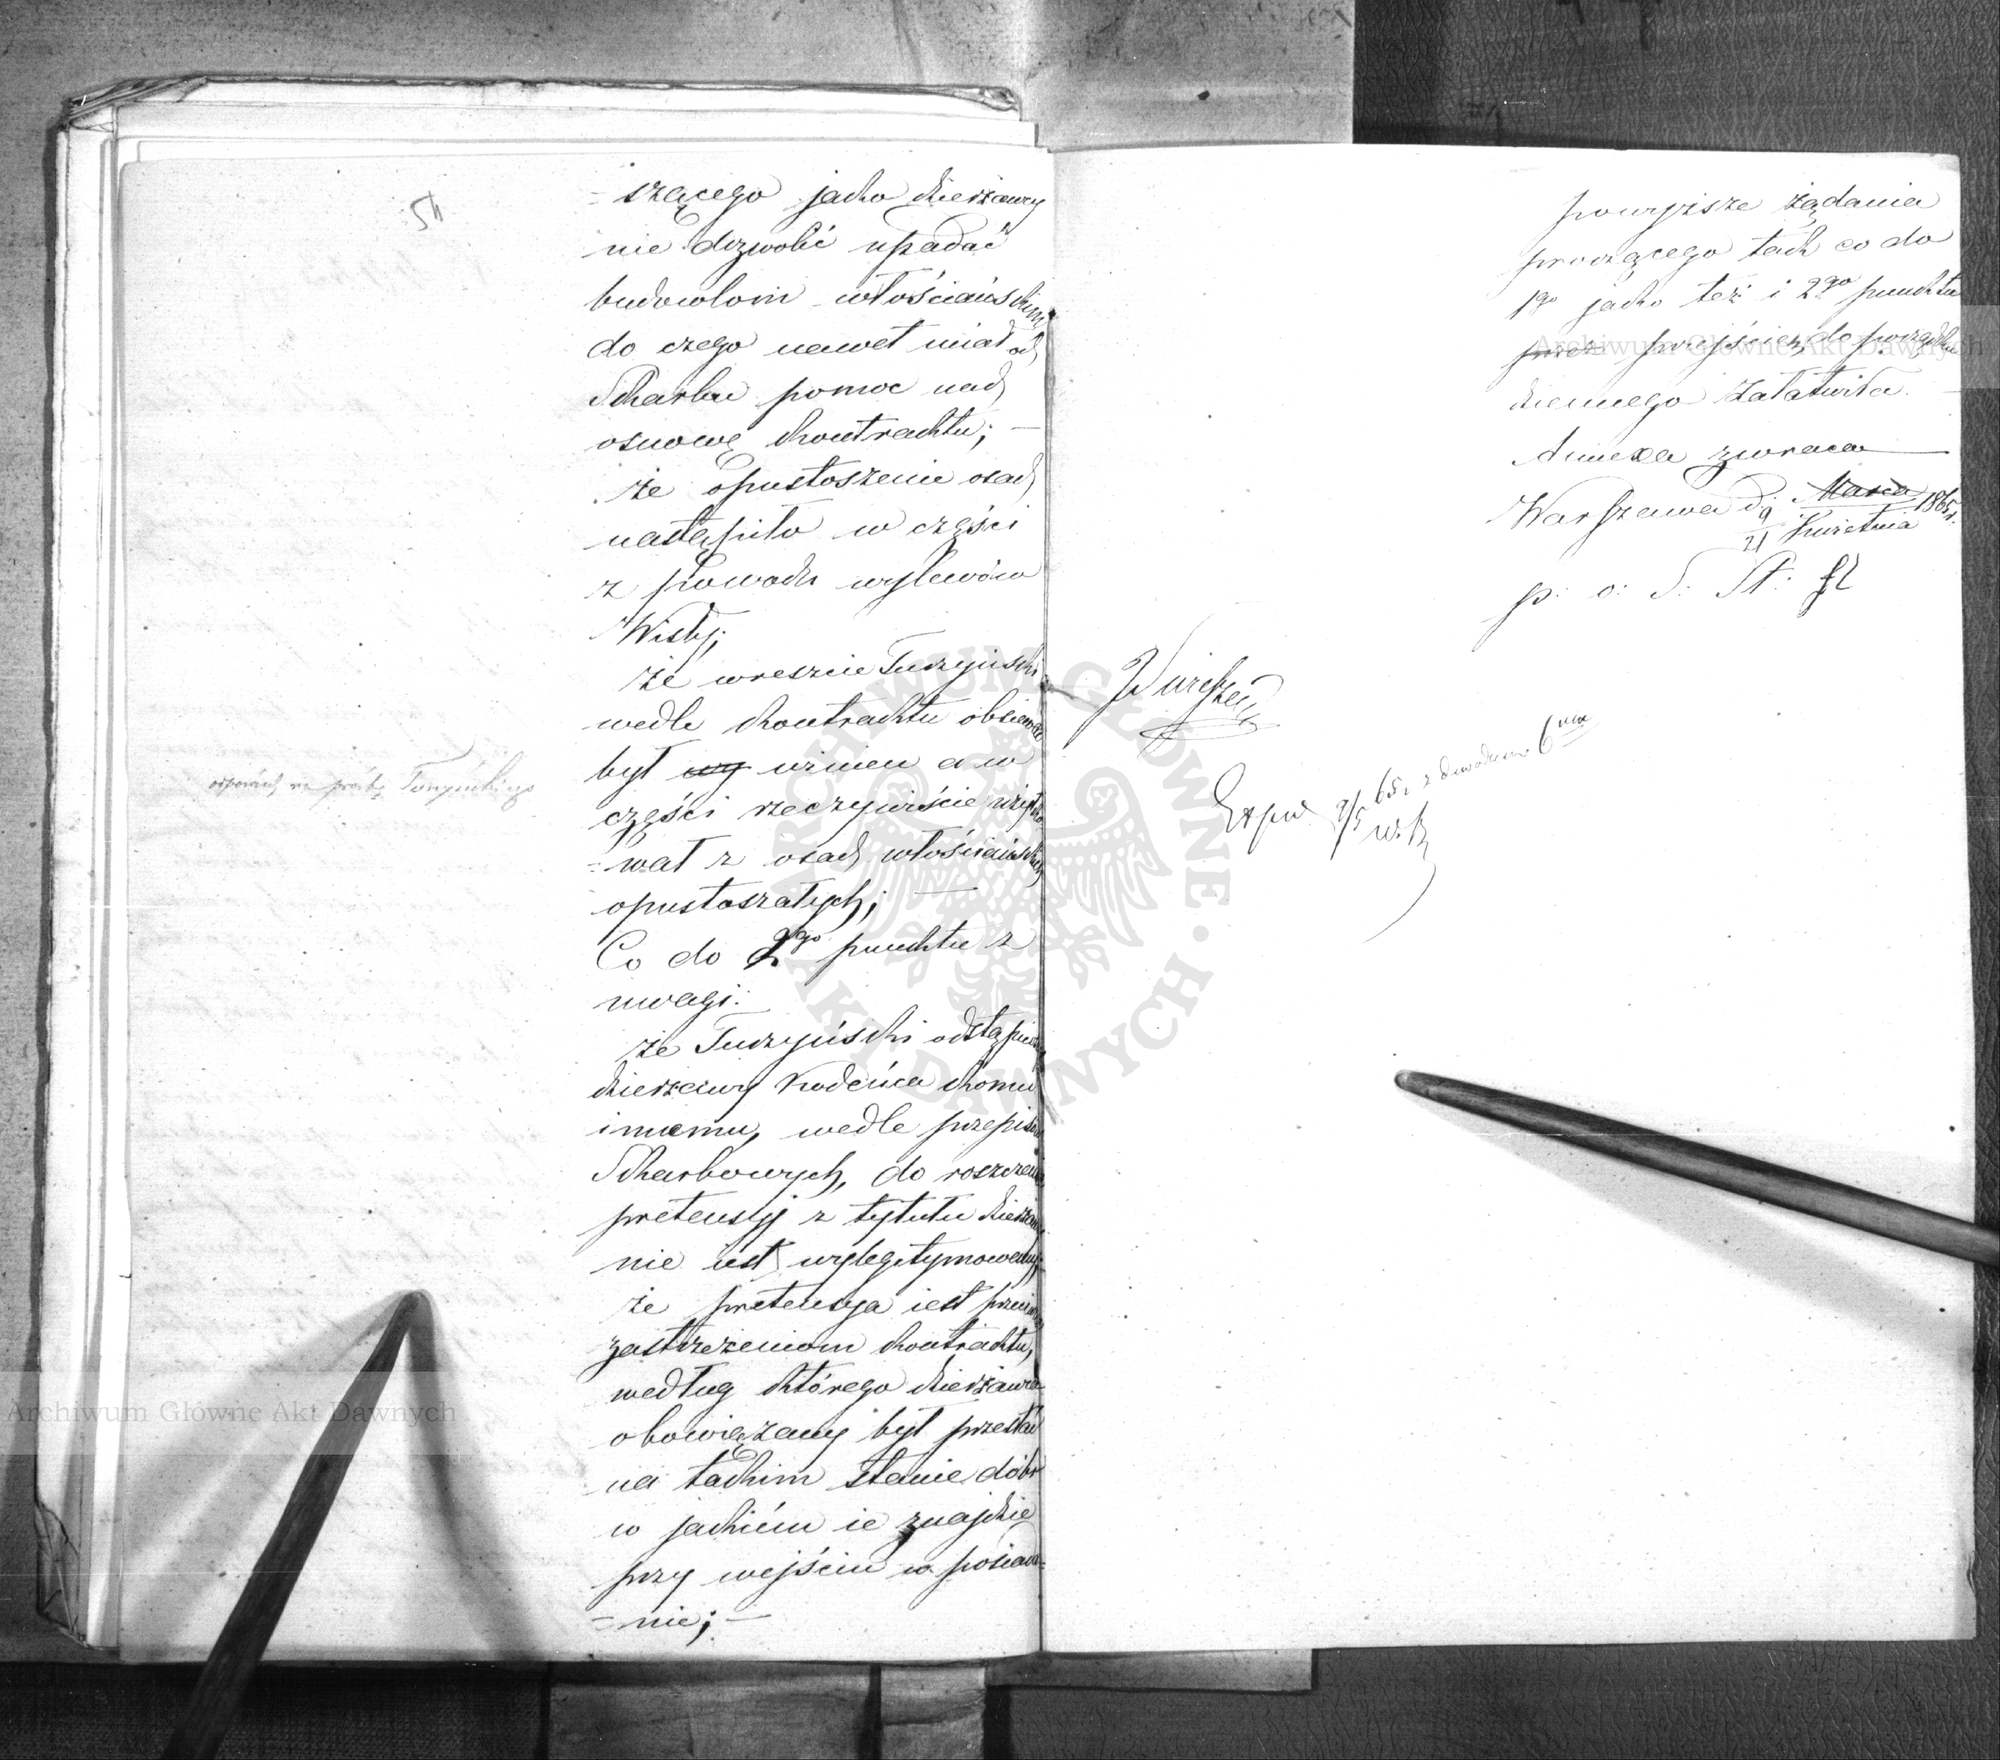 = szącego jako dzierżawcy
nie dozwolić upadać
budowlom włościańskim,
do czego nawet miał od
Skarbu pomoc nad
osnowę kontraktu; —
że opustoszenie osad
nastąpiło w części
z powodu wylewów
Wisły;
że wreszcie Tuczyński
wedle kontraktu obsiewać
był wy winien a w
części rzeczywiście użytko
= wał z osad włościańskich
opustoszałych; —
Co do 2go punktu z
uwagi:
że Tuczyński odstąpiwszy
dzierżawy Kodeńca komu
innemu, wedle przepisów
Skarbowych, do roszczenia
pretensyj z tytułu dzierżawy
nie iest wylegitymowany;
że pretensya iest przeciwną
zastrzeżeniom kontraktu,
według którego dzierżawca
obowiązany był przestać
na takim stanie dóbr
w jakiém ie znajdzie
przy wejściu w posiada=
= nie; —
odpowiedź na prośbę Tuczyńskiego
powyższe żądania
proszącego tak co do
1go jako też i 2go punktu
przez przejście do porządku
dziennego załatwiła. —
Annexa zwraca —
Warszawa d: 9/21 Marca Kwietnia 1865 r.
p: o: S: St:
Exped 9/5 65 r z dowodami 6ma
Archiwum Główne Akt Dawnych
Archiwum Główne Akt Dawnych
ARCHIWUM GŁÓWNE AKT DAWNYCH